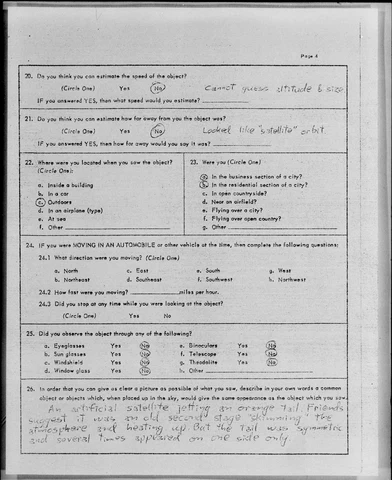 Page 4
20. Do you think you can estimate the speed of the object?
(Circle One) Yes No Cannot guess altitude & size
IF you answered YES, then what speed would you estimate?
21. Do you think you can estimate how far away from you the object was?
(Circle One) Yes No Looked like "satellite" orbit.
IF you answered YES, then how far away would you say it was?
22. Where were you located when you saw the object?
(Circle One):
a. Inside a building
b. In a car
c. Outdoors
d. In an airplane (type)
e. At sea
f. Other
23. Were you (Circle One)
a. In the business section of a city?
b. In the residential section of a city?
c. In open countryside?
d. Near an airfield?
e. Flying over a city?
f. Flying over open country?
g. Other
24. IF you were MOVING IN AN AUTOMOBILE or other vehicle at the time, then complete the following questions:
24.1 What direction were you moving? (Circle One)
a. North c. East e. South g. West
b. Northeast d. Southeast f. Southwest h. Northwest
24.2 How fast were you moving? miles per hour.
24.3 Did you stop at any time while you were looking at the object?
(Circle One) Yes No
25. Did you observe the object through any of the following?
a. Eyeglasses Yes No e. Binoculars Yes No
b. Sun glasses Yes No f. Telescope Yes No
c. Windshield Yes No g. Theodolite Yes No
d. Window glass Yes No h. Other
26. In order that you can give as clear a picture as possible of what you saw, describe in your own words a common
object or objects which, when placed up in the sky, would give the same appearance as the object which you saw.
An artificial satellite jetting an orange tail. Friends
suggest it was an old second stage "skimming" the
atmosphere and heating up. But the tail was symmetric
and several times appeared on one side only.